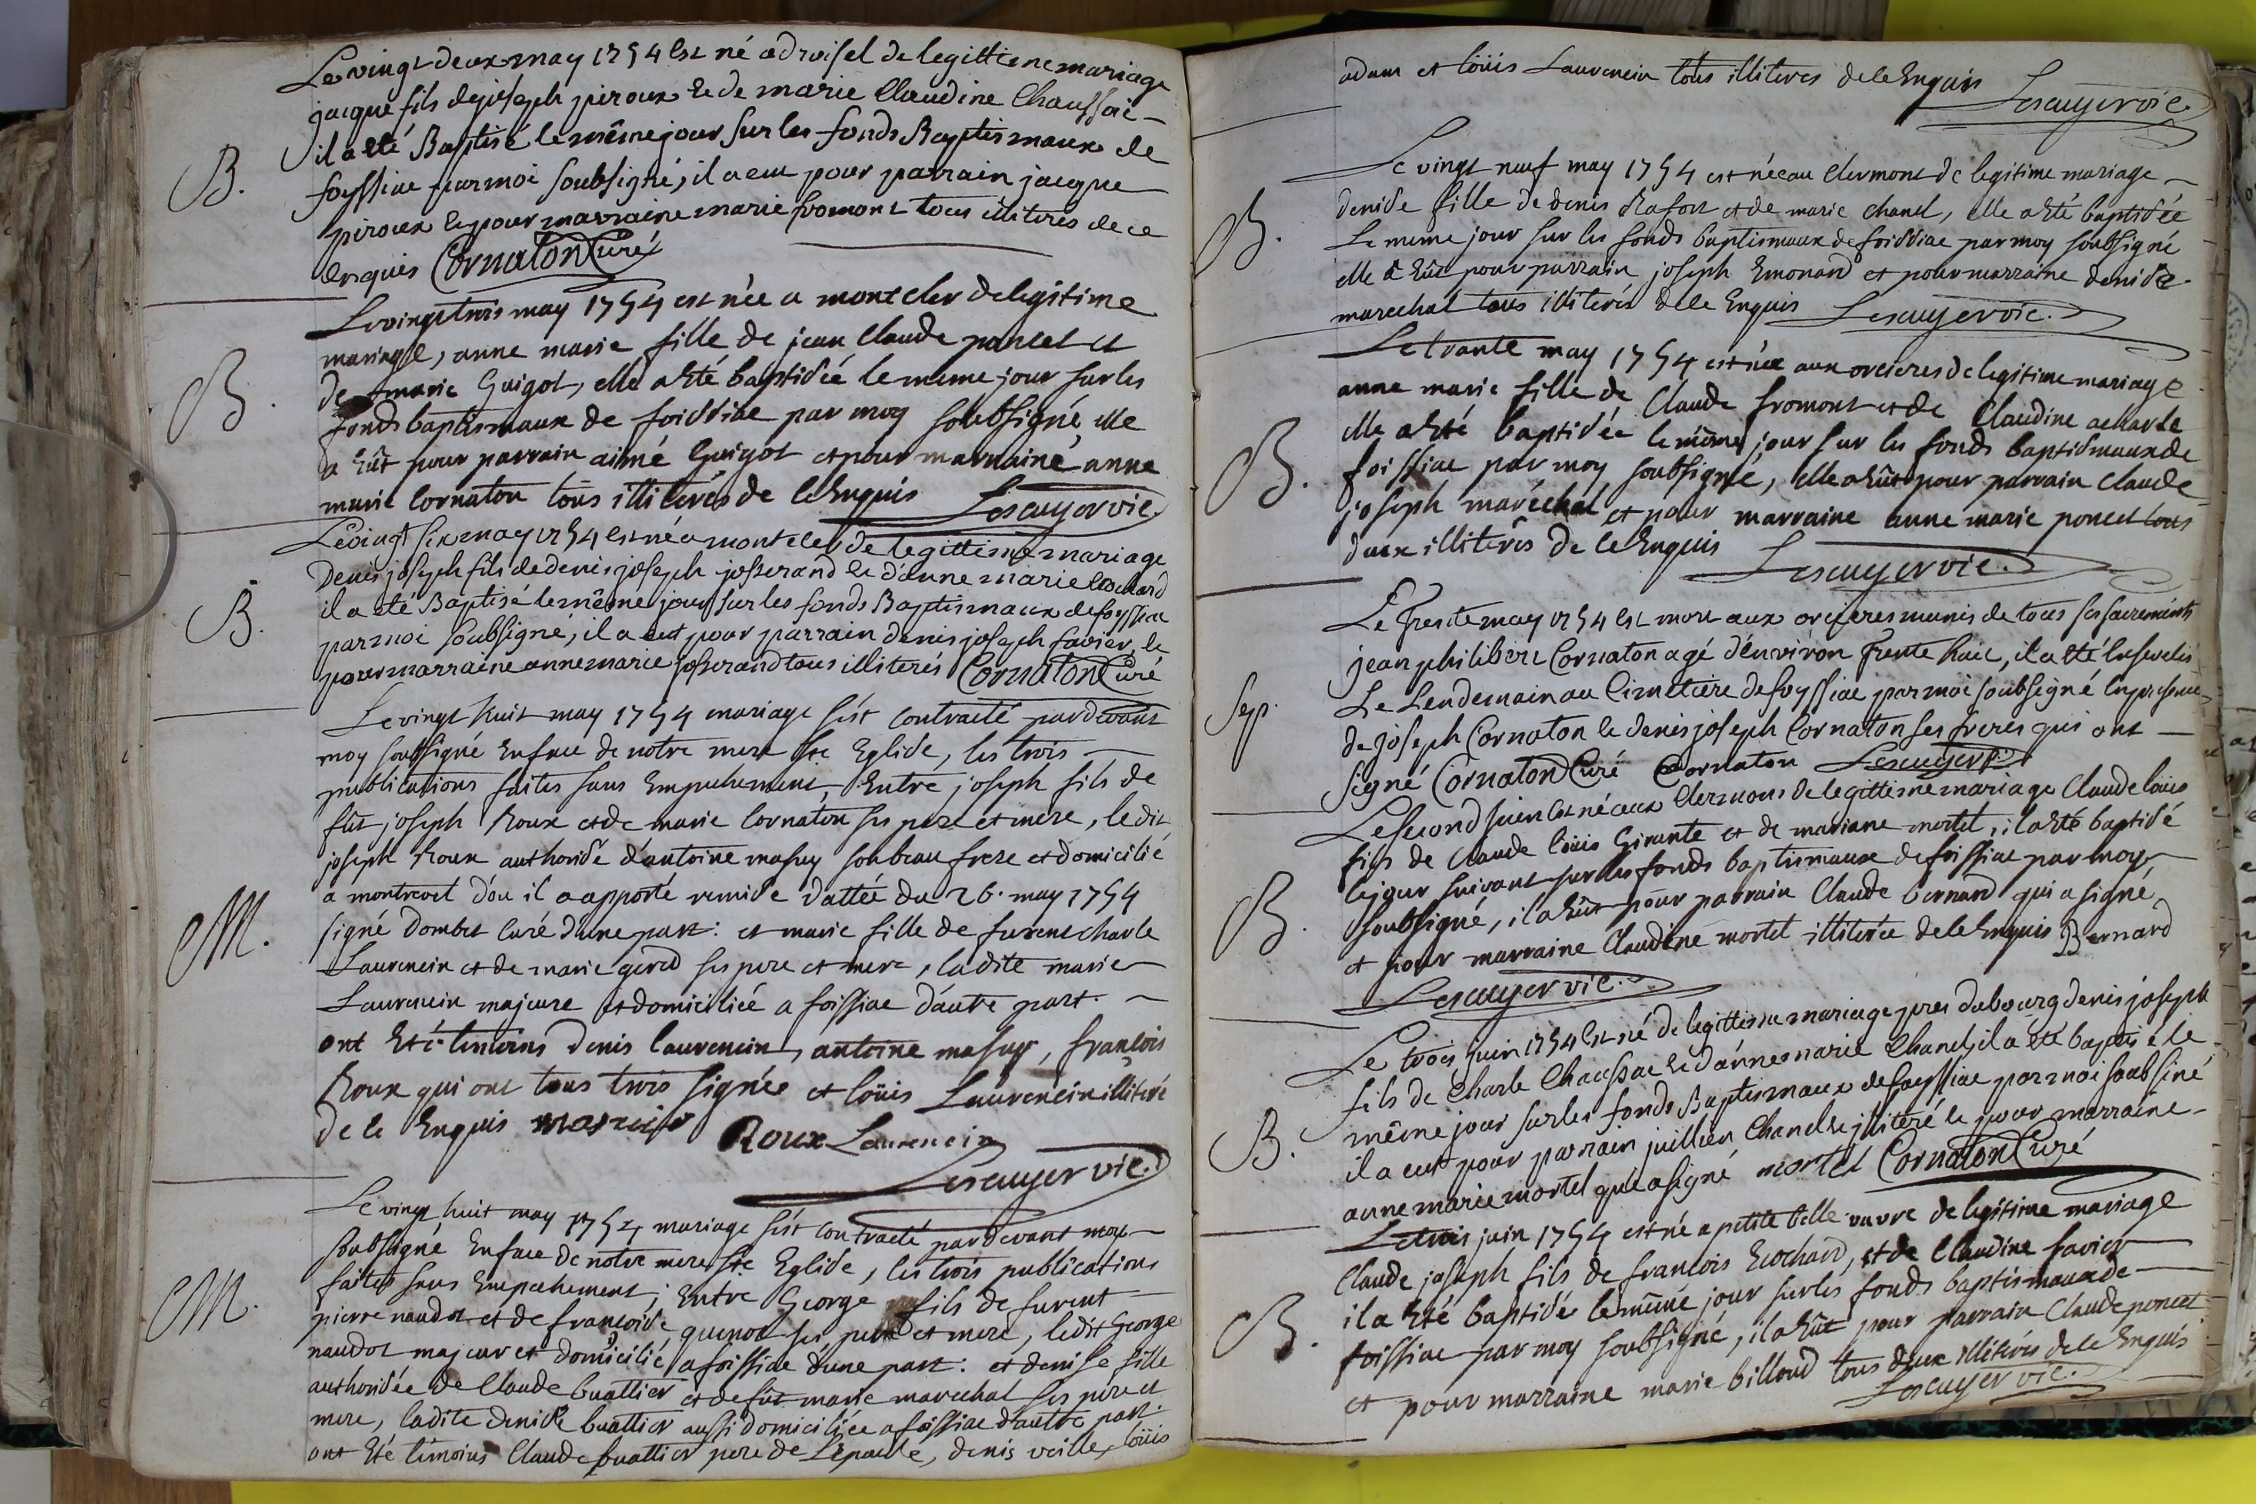 Le vingt deux may 1754 est né a droisel de legittime mariage
jacque fils de joseph piroux et de marie Claudine Chaussat
B. il a eté Baptisé le même jour sur les fonds Baptismaux de
foyssiac par moi soubsigné, il a eut pour parrain jacque
piroux et pour marraine marie fromont tous illiterés de ce
enquis Cornaton Curé
Le vingt trois may 1754 est née a montcler de legitime
mariage, anne marie fille de jean Claude poncet et
B. de marie Guigot, elle a eté baptisée le meme jour sur les
fonds baptismaux de foissiac par moy soubsigné elle
a hût pour parrain aimé Guigot et pour marraine anne
marie Cornaton tous illiterés de ce Enquis Lescuyer vic.
Le vingt six may 1754 est né a montcler de legittime mariage
Denis joseph fils de denis joseph josserand et d'anne marie Erochard
B. il a eté Baptisé le même jour sur les fonds Baptismaux de foyssiac
par moi soubsigné, il a eut pour parrain denis joseph favier et
pour marraine anne marie josserand tous illiterés Cornaton Curé
Le vingt huit may 1754 mariage s'est contracté pardevant
moy soubsigné Enface de notre mere ste Eglise, les trois
publications faites sans Empechement, Entre joseph fils de
fût joseph Roux et de marie Cornaton ses pere et mere, le dit
joseph Roux authorisé d'antoine masuy son beau frere et domicilié
a montrevel d'ou il a apporté remise dattée du 26. may 1754
M. signé Dombet Curé d'une part: et marie fille de furent charle
Laurencin et de marie gérod ses pere et mere, ladite marie
Laurencin majeure et domiciliée a foissiac d'autre part.
ont Eté temoins denis laurencin, antoine masuy, françois
Roux qui ont tous trois signés et loüis Laurencin illiteré
de ce Enquis masuy Roux Laurencin
Lescuyer vic.
Le vingt huit may 1754 mariage s'est contracté pardevant moy
soubsigné Enface de notre mere ste Eglise, les trois publications
faites sans Empechement; Entre George fils de furent
M. pierre naudot et de françoise quenot ses pere et mere, ledit George
naudot majeur et domicilié a foissiac d'une part: et denise fille
authorisée de Claude buattier et de fût marie marechal ses pere et
mere, ladite denise buattier aussi domiciliée a foissiac d'autre part.
ont Eté temoins Claude buattier pere de L'Epouse, denis veille, loüis
adam et loüis Laurencin tous illiteres de ce Enquis
Lescuyer vic.
Le vingt neuf may 1754 est née au Clermont de legitime mariage
B. denise fille de denis Rafort et de marie chanel, elle a eté baptisée
Le meme jour sur les fonds baptismaux de foissiac par moy soubsigné
elle a hût pour parrain joseph Emonard et pour marraine denise
marechal tous illiterés de ce Enquis Lescuyer vic.
Le trante may 1754 est née aux orcieres de legitime mariage
anne marie fille de Claude fromont et de Claudine acharde
B. elle a eté baptisée le même jour sur les fonds baptismaux de
foissiac par moy soubsigné, elle a hût pour parrain Claude
joseph maréchal et pour marraine anne marie poncet tous
deux illiterés de ce Enquis Lescuyer vic.
Le Trente may 1754 est mort aux orcieres munis de tous ses sacrements
jean philibert Cornaton agé d'environ Trente huit, il a eté Ensevelis
Sep. Le Lendemain au Cimetiere de foyssiac par moi soubsigné En presence
de joseph Cornaton et denis joseph Cornaton ses freres qui ont
signé Cornaton Curé Cornaton Lescuyer v.
Le second juin est né aux Clermons de legittime mariage Claude loüis
fils de Claude loüis Girante et de mariane mortel, il a eté baptisé
B. le jour suivant sur les fonds baptismaux de foissiac par moy
soubsigné, il a hût pour parrain Claude bernard qui a signé
et pour marraine Claudine mortel illiterée de ce Enquis Bernard
Lescuyer vic.
Le trois juin 1754 est né de legittime mariage pres du bourg denis joseph
fils de Charle Chaussat et d'anne marie Chanel, il a eté baptisé le
B. même jour sur les fonds Baptismaux de foyssiac par moi soubsiné
il a eut pour parrain juillien Chanel illiteré et pour marraine
anne marie mortel qui a signé mortel Cornaton Curé
Le trois juin 1754 est né a petite belle vavre de legitime mariage
Claude joseph fils de françois Erochard, et de Claudine favier
B. il a eté baptisé le même jour sur les fonds baptismaux de
foissiac par moy soubsigné, il a hût pour parrain Claude poncet
et pour marraine marie billoud tous deux illiterés de ce Enquis
Lescuyer vic.